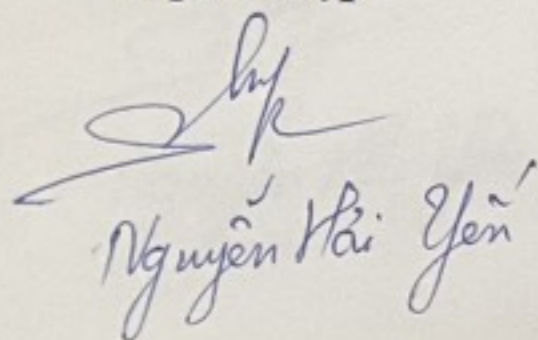 Nguyễn Hải Yến